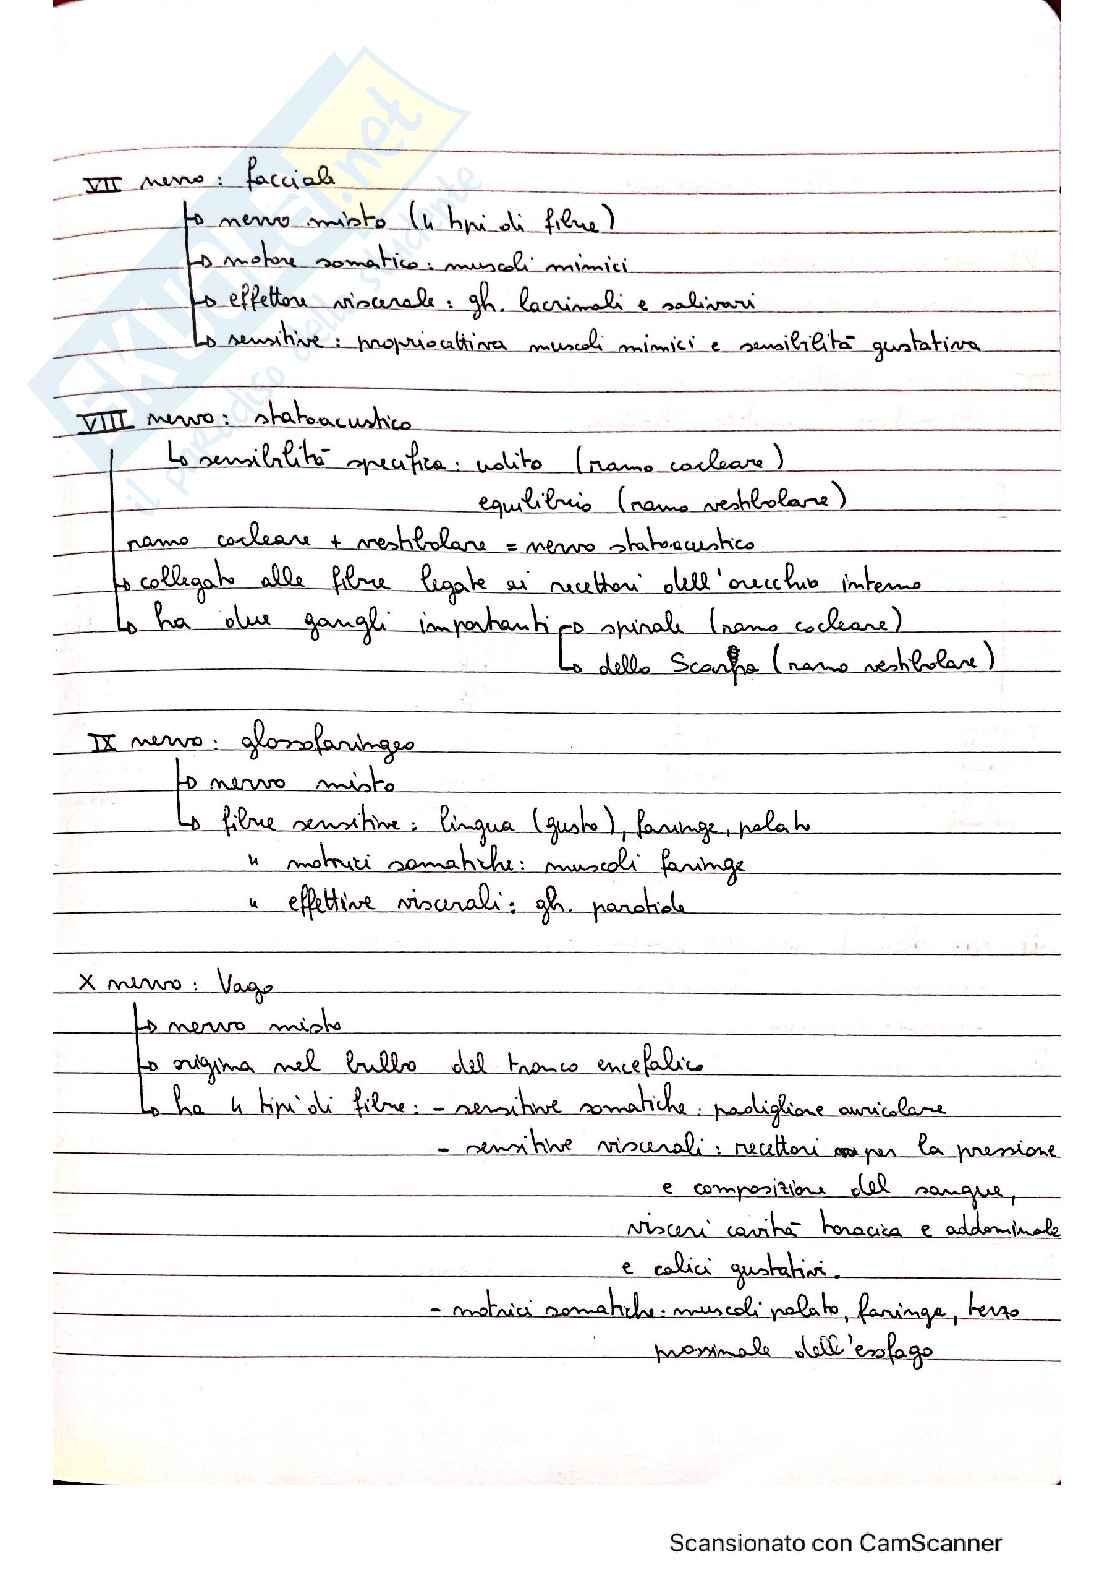 VII nervo: facciale
↳ nervo misto (4 tipi di fibre)
↳ motore somatico: muscoli mimici
↳ effettore viscerale: gh. lacrimali e salivari
↳ sensitive: propriocettiva muscoli mimici e sensibilità gustativa
VIII nervo: statoacustico
↳ sensibilità specifica: udito (ramo cocleare)
equilibrio (ramo vestibolare)
ramo cocleare + vestibolare = nervo statoacustico
↳ collegato alle fibre legate ai recettori dell'orecchio interno
↳ ha due gangli importanti → spirale (ramo cocleare)
↳ dello Scarpa (ramo vestibolare)
IX nervo: glossofaringeo
↳ nervo misto
↳ fibre sensitive: lingua (gusto), faringe, palato
" motrici somatiche: muscoli faringe
" effettive viscerali: gh. parotide
X nervo: Vago
↳ nervo misto
↳ origina nel bulbo del tronco encefalico
↳ ha 4 tipi di fibre: - sensitive somatiche: padiglione auricolare
- sensitive viscerali: recettori per la pressione
e composizione del sangue,
visceri cavità toracica e addominale
e calici gustativi.
- motrici somatiche: muscoli palato, faringe, terzo
prossimale dell'esofago
SKUOLA.net
il paradiso dello studente
Scansionato con CamScanner